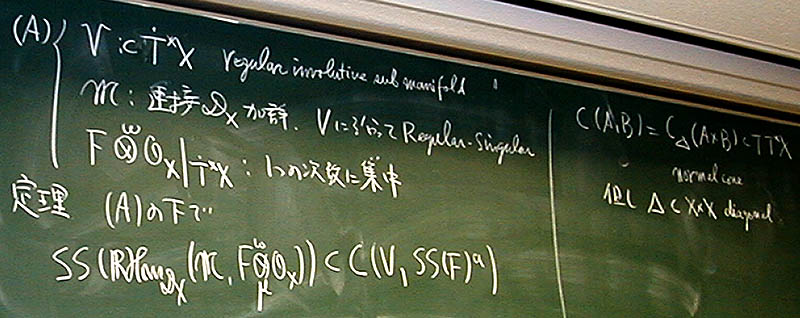 (A) V ⊂ Ṫ*X regular involutive submanifold
𝔐 : 連接 𝒟_X 加群. Vに沿って Regular-Singular
F ⊗^w 𝒪_X |_Ṫ*X : 1つの次数に集中
定理 (A)の下で
SS(RHom_𝒟_X(𝔐, F ⊗^w_μ 𝒪_X)) ⊂ C(V, SS(F)^a)
C(A,B) = C_Δ(A×B) ⊂ TT*X
normal cone
但し Δ ⊂ X×X diagonal